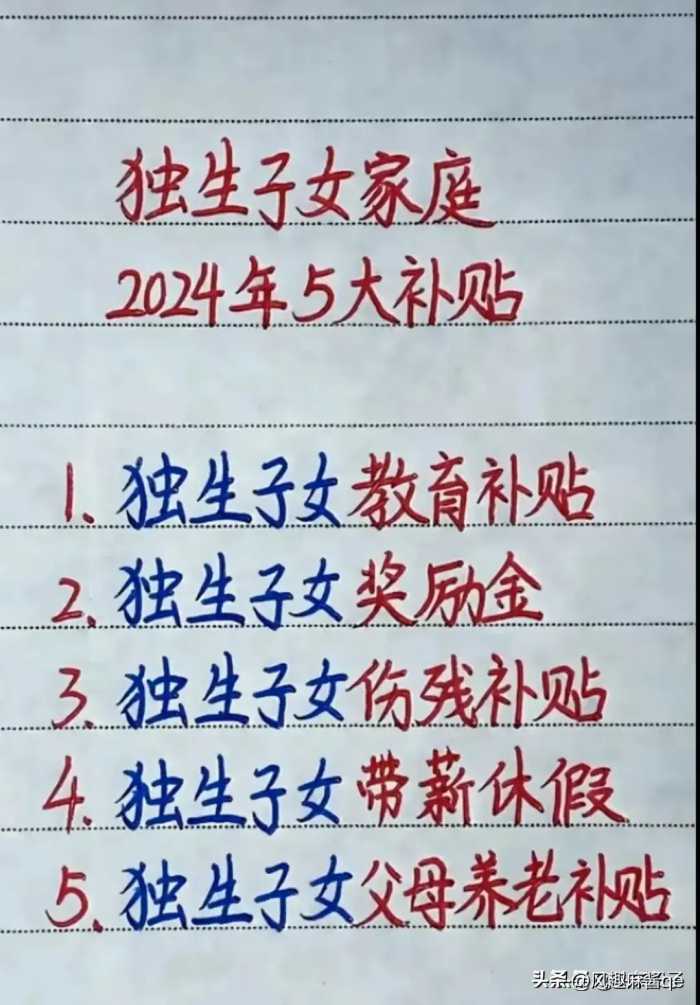 独生子女家庭
2024年5大补贴
1、独生子女教育补贴
2、独生子女奖励金
3、独生子女伤残补贴
4、独生子女带薪休假
5、独生子女父母养老补贴
头条@风趣麻酱